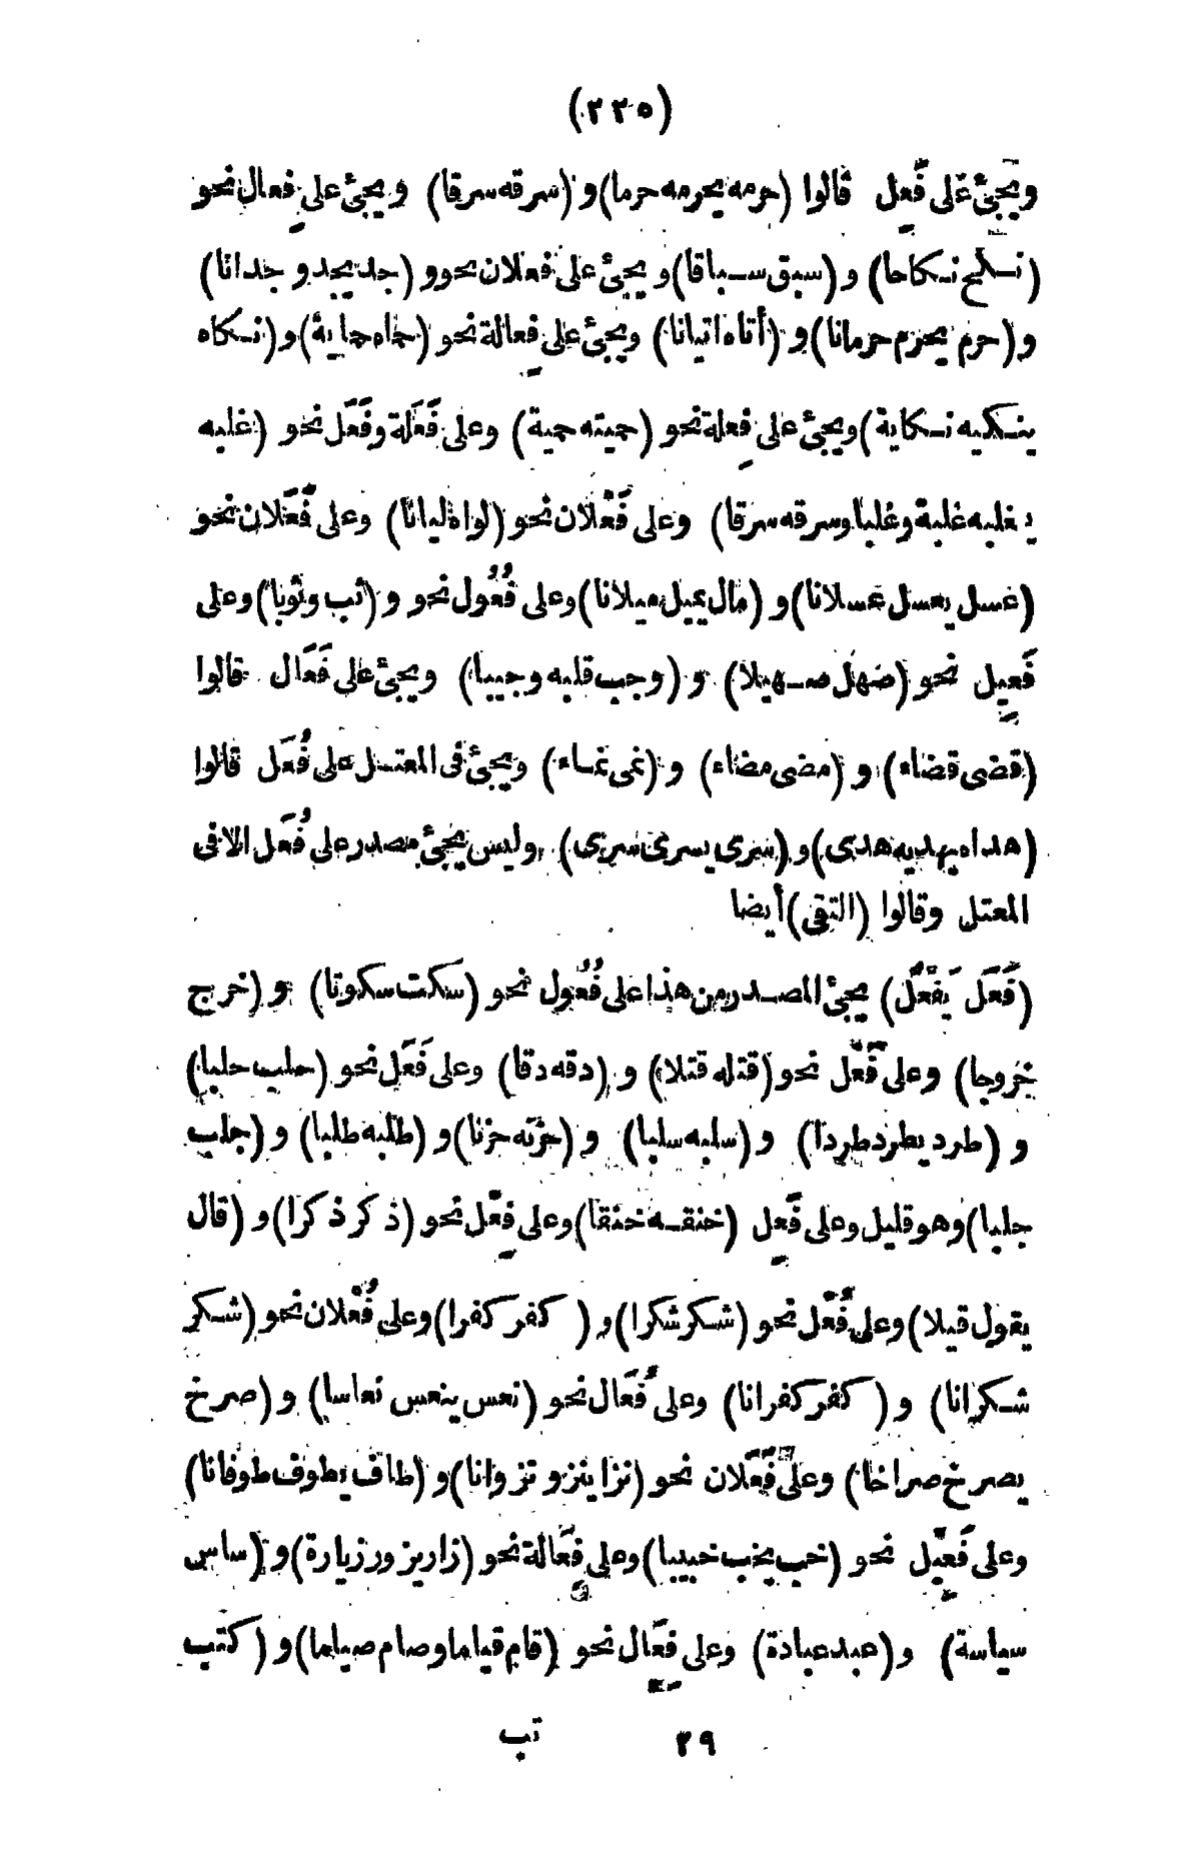 (٢٢٥)
ويجئ على فَعِل قالوا (حرمه يحرمه حرما) و (سرقه سرقا) ويجئ على فِعال نحو
(نكح نكاحا) و (سبق سباقا) و يجئ على فعلان نحوو (جد يجد و جدانا)
و (حرم يحرم حرمانا) و (أتاه اتيانا) ويجئ على فِعالة نحو (حماه حماية) و (نكاه
ينكيه نكاية) ويجئ على فِعلة نحو (حميته حمية) وعلى فَعَلة وفَعَل نحو (غلبه
يغلبه غلبة وغلبا وسرقه سرقا) وعلى فَعْلان نحو (لواه ليانا) وعلى فَعَلان نحو
(عسل يعسل عسلانا) و (مال يميل ميلانا) وعلى فُعُول نحو و (ثب وثوبا) وعلى
فَعِيل نحو (صهل صهيلا) و (وجب قلبه وجيبا) ويجئ على فَعَال قالوا
(قضى قضاء) و (مضى مضاء) و (نمى نماء) ويجئ فى المعتل على فُعَل قالوا
(هداه يهديه هدى) و (سرى يسرى سرى) وليس يجئ مصدر على فُعَل الا فى
المعتل وقالوا (التقى) أيضا
(فَعَلَ يَفْعُل) يجئ المصدر من هذا على فُعُول نحو (سكت سكوتا) و (خرج
خروجا) وعلى فَعْل نحو (قتله قتلا) و (دقه دقا) وعلى فَعَل نحو (حلب حلبا)
و (طرد يطرد طردا) و (سلبه سلبا) و (حزنه حزنا) و (طلبه طلبا) و (جلب
جلبا) وهو قليل وعلى فَعِل (خنقه خنقا) وعلى فِعْل نحو (ذكر ذكرا) و (قال
يقول قيلا) وعلى فُعْل نحو (شكر شكرا) و (كفر كفرا) وعلى فُعْلان نحو (شكر
شكرانا) و (كفر كفرانا) وعلى فُعَال نحو (نعس ينعس نعاسا) و (صرخ
يصرخ صراخا) وعلى فَعَلان نحو (نزا ينزو نزوانا) و (طاف يطوف طوفانا)
وعلى فَعِيل نحو (خب يخب خبيبا) وعلى فِعَالة نحو (زار يزور زيارة) و (ساس
سياسة) و (عبد عبادة) وعلى فِعَال نحو (قام قياما وصام صياما) و (كتب
٢٩ تب